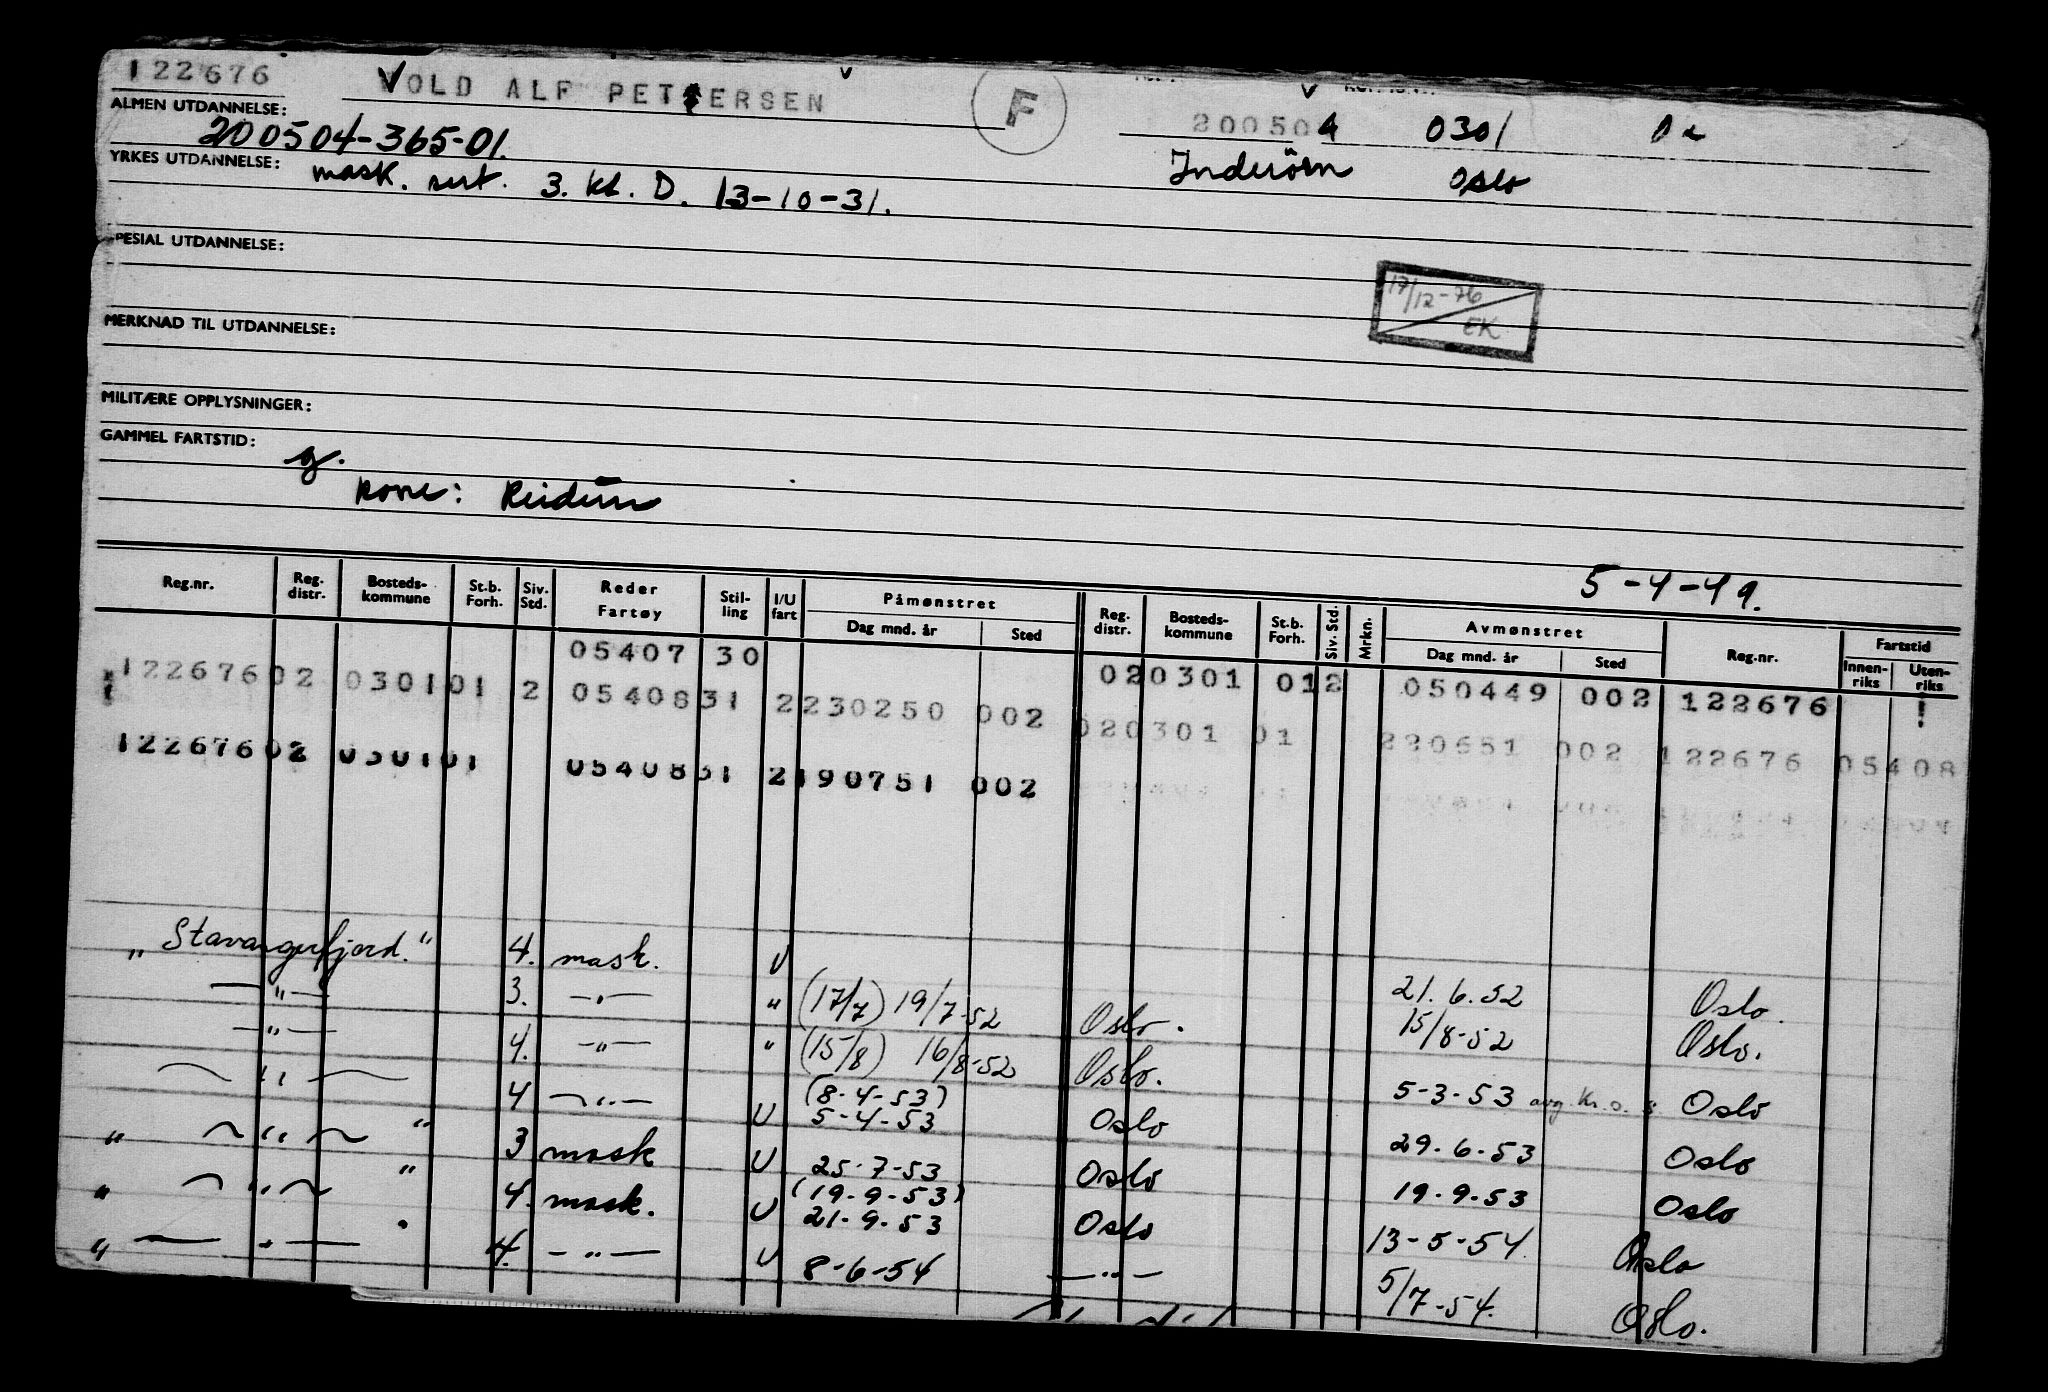 122676 VOLD ALF PETTERSEN F 200504 0301
ALMEN UTDANNELSE: 200504-365-01.
Inderöen Oslo
YRKES UTDANNELSE: mask. sert. 3. kl. D. 13-10-31.
SPESIAL UTDANNELSE:
17/12-76 EK
MERKNAD TIL UTDANNELSE:
MILITÆRE OPPLYSNINGER:
GAMMEL FARTSTID: g.
kone: Reidun
5-4-49.
Reg.nr. Reg. distr. Bosteds-kommune St.b. Forh. Siv. Std. Reder Fartøy Stil-ling I/U fart Påmønstret Dag mnd. år Sted Reg. distr. Bosteds-kommune St.b. Forh. Siv. Std. Mrkn. Avmønstret Dag mnd. år Sted Reg.nr. Fartstid Innen-riks Uten-riks
05407 30 020301 012 050449 002 122676
12267602 030101 2 0540831 2230250 002 020301 01 220651 002 122676 05408
12267602 030101 0540831 2190751 002
" Stavangerfjord." 4. mask. U 21.6.52 Oslo.
—"— 3. —"— " (17/7) 19/7-52 Oslo. 15/8-52 Oslo.
—"— 4. —"— " (15/8) 16/8-52 Oslo. 5-3-53 avg. Kr.s. Oslo
—"— 4 —"— U (8-4-53) 5-4-53 Oslo 29.6.53 Oslo
" —"— " 3 mask U 25-7-53 Oslo 19.9.53 Oslo
" —"— " 4. mask. U (19-9-53) 21-9-53 Oslo 13-5-54 Oslo
" —"— " 4. —"— U 8-6-54 —"— 5/7-54. Oslo.